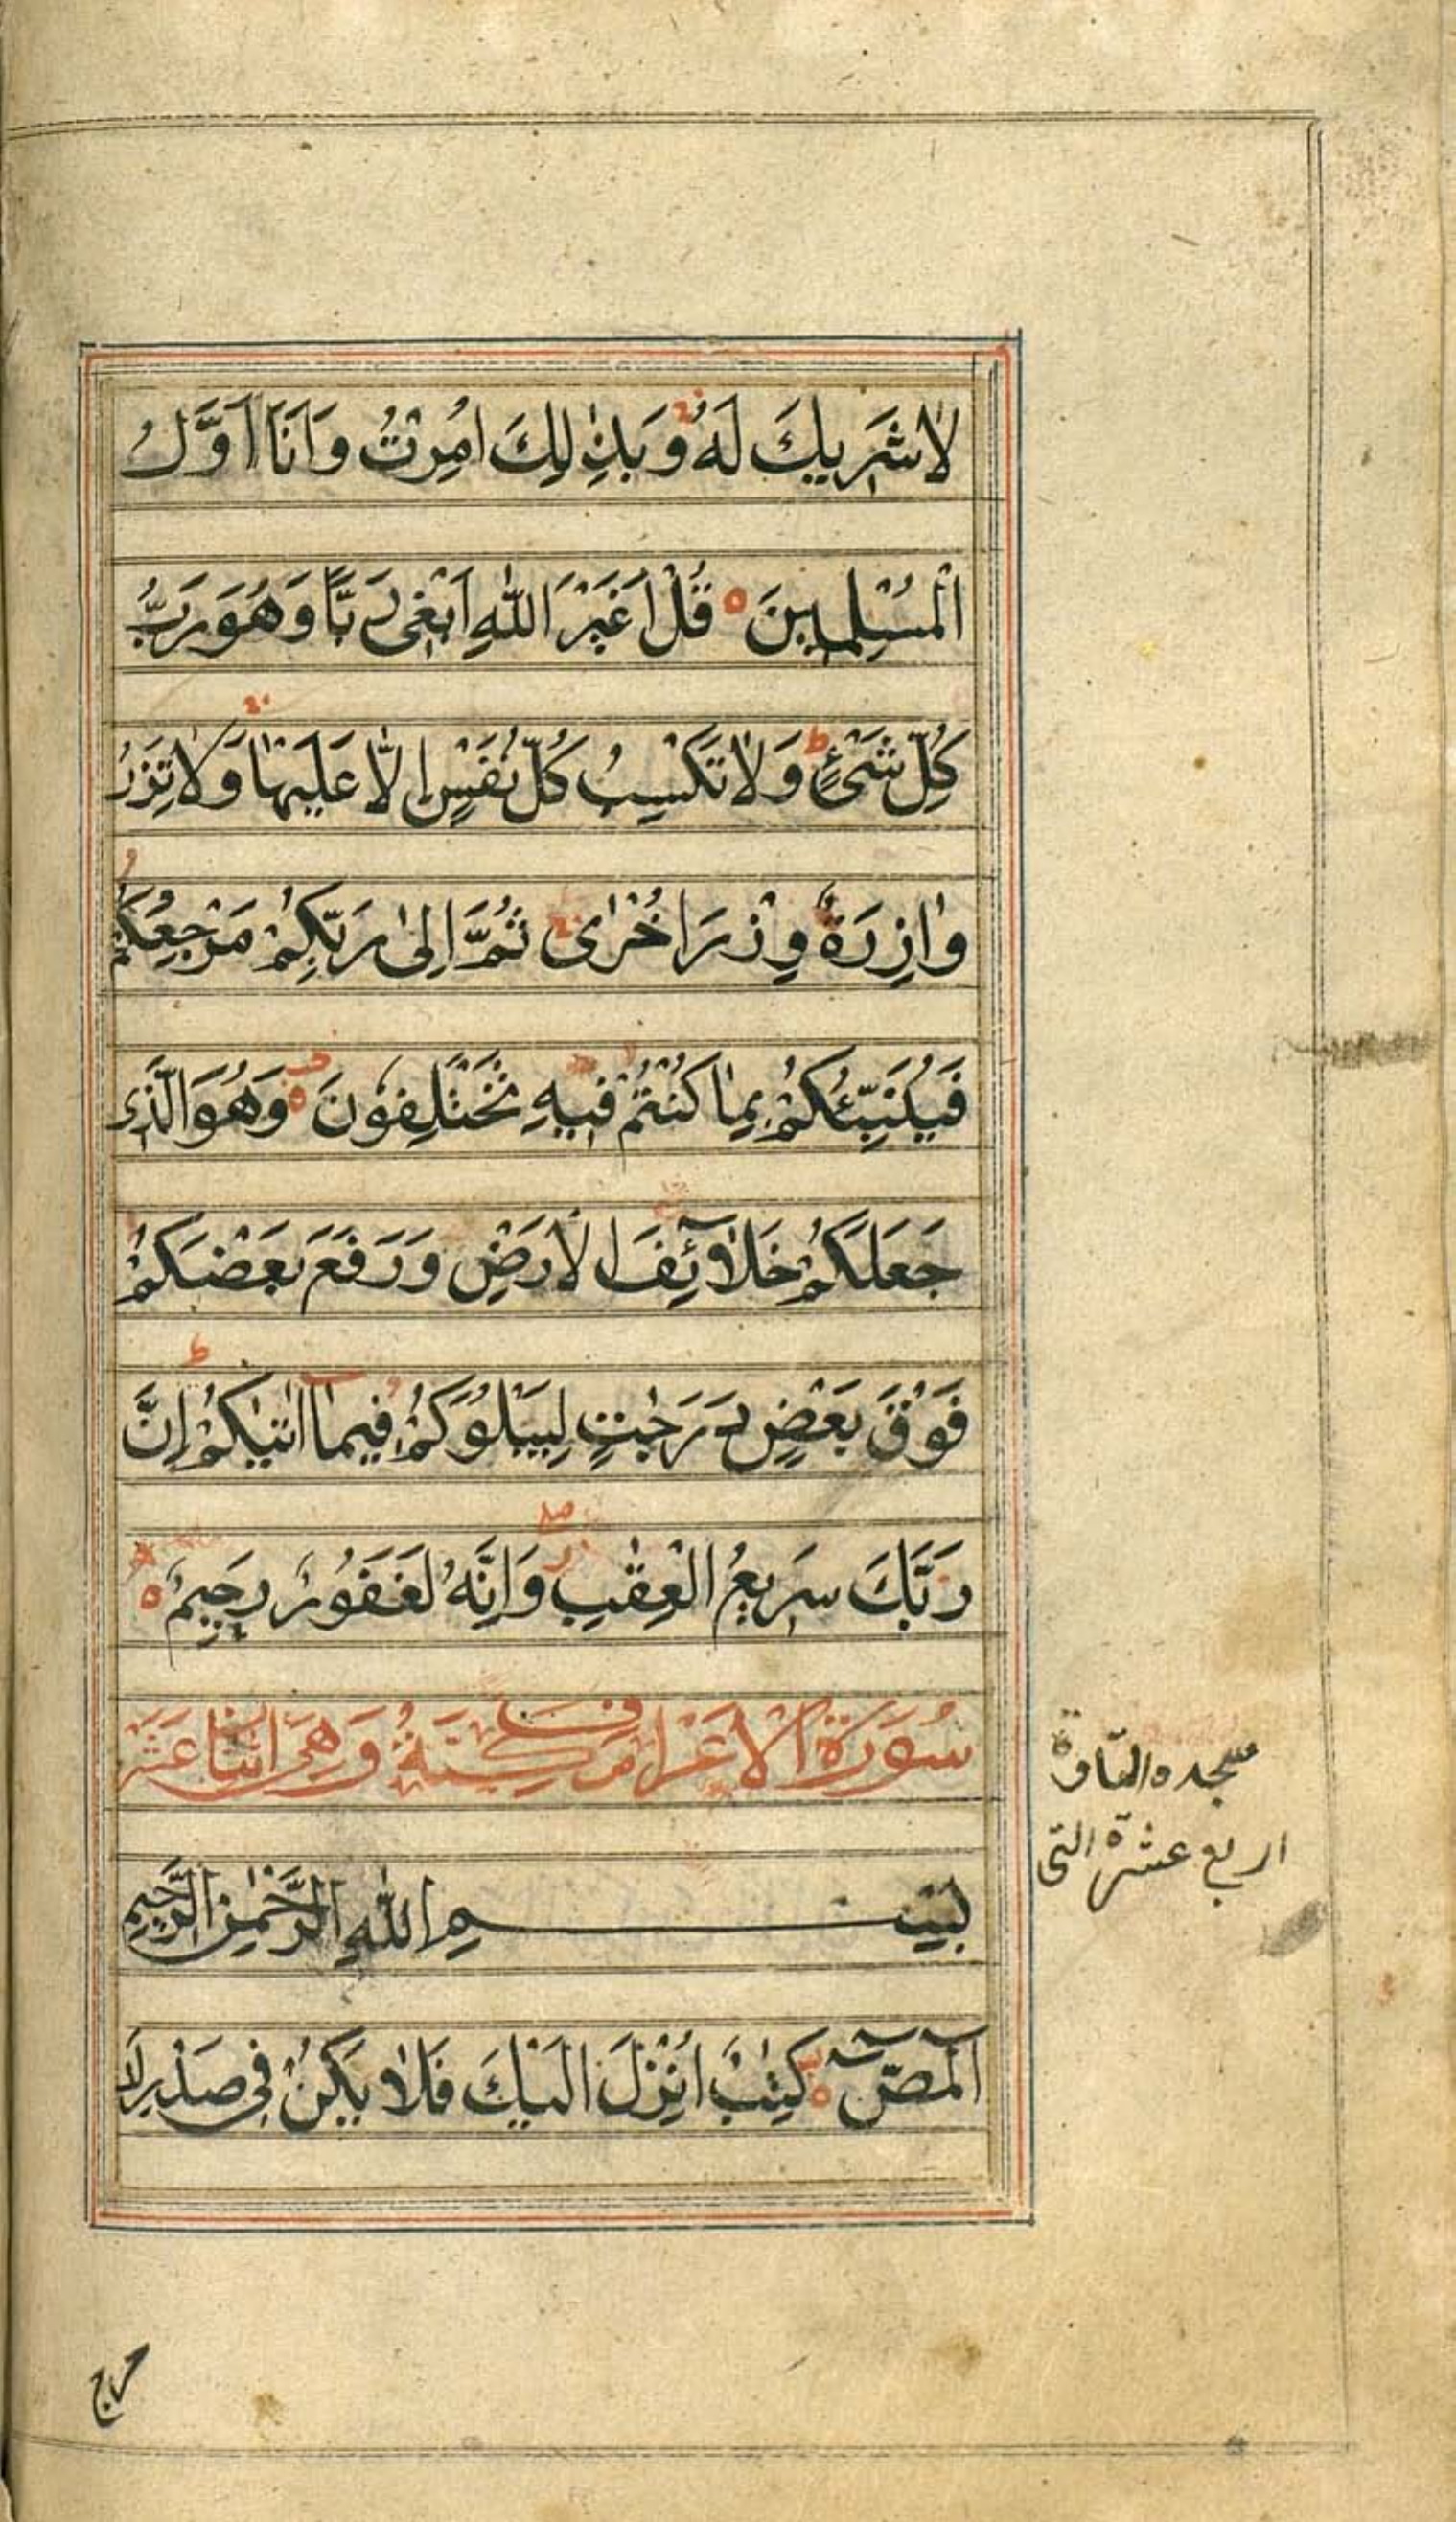 لَا شَرِيكَ لَهُ وَبِذٰلِكَ اُمِرْتُ وَاَنَا اَوَّلُ
الْمُسْلِمِينَ ه قُلْ اَغَيْرَ اللّٰهِ اَبْغِى رَبًّا وَهُوَ رَبُّ
كُلِّ شَىْءٍ ط وَلَا تَكْسِبُ كُلُّ نَفْسٍ اِلَّا عَلَيْهَا وَلَا تَزِرُ
وَازِرَةٌ وِزْرَ اُخْرٰى ثُمَّ اِلٰى رَبِّكُمْ مَرْجِعُكُمْ
فَيُنَبِّئُكُمْ بِمَا كُنْتُمْ فِيهِ تَخْتَلِفُونَ ه وَهُوَ الَّذِى
جَعَلَكُمْ خَلَائِفَ الْاَرْضِ وَرَفَعَ بَعْضَكُمْ
فَوْقَ بَعْضٍ دَرَجٰتٍ لِيَبْلُوَكُمْ فِيمَا اٰتٰيكُمْ ط اِنَّ
رَبَّكَ سَرِيعُ الْعِقٰبِ وَاِنَّهُ لَغَفُورٌ رَحِيمٌ ه
سُورَةُ الْاَعْرَافِ مَكِّيَّةٌ وَهِىَ
بِسْمِ اللّٰهِ الرَّحْمٰنِ الرَّحِيمِ
الٓمٓصٓ ه كِتٰبٌ اُنْزِلَ اِلَيْكَ فَلَا يَكُنْ فِى صَدْرِكَ
سجده
اربع عشرة التى
حرج